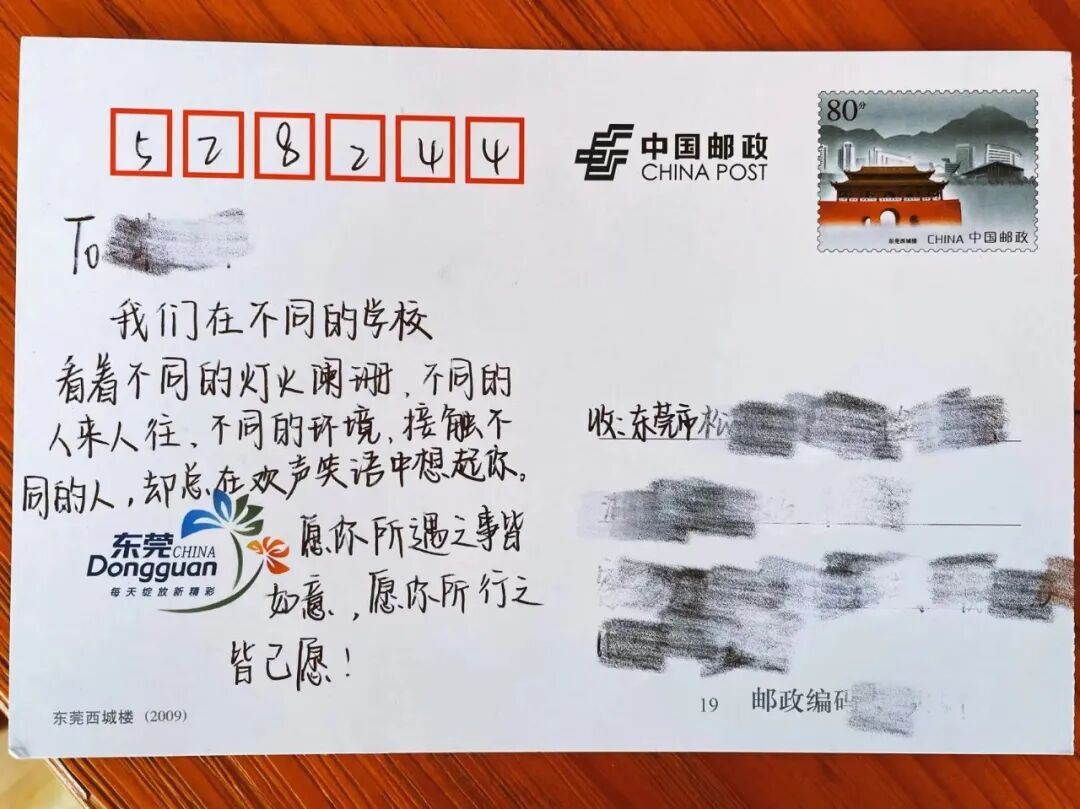 528244
中国邮政
CHINA POST
80分
东莞西城楼 CHINA 中国邮政
To
我们在不同的学校
看着不同的灯火阑珊、不同的
人来人往、不同的环境、接触不
同的人，却总在欢声笑语中想起你。
愿你所遇之事皆
如意，愿你所行之
皆己愿！
东莞CHINA
Dongguan
每天绽放新精彩
收：东莞市松
东莞西城楼 (2009)
19 邮政编码